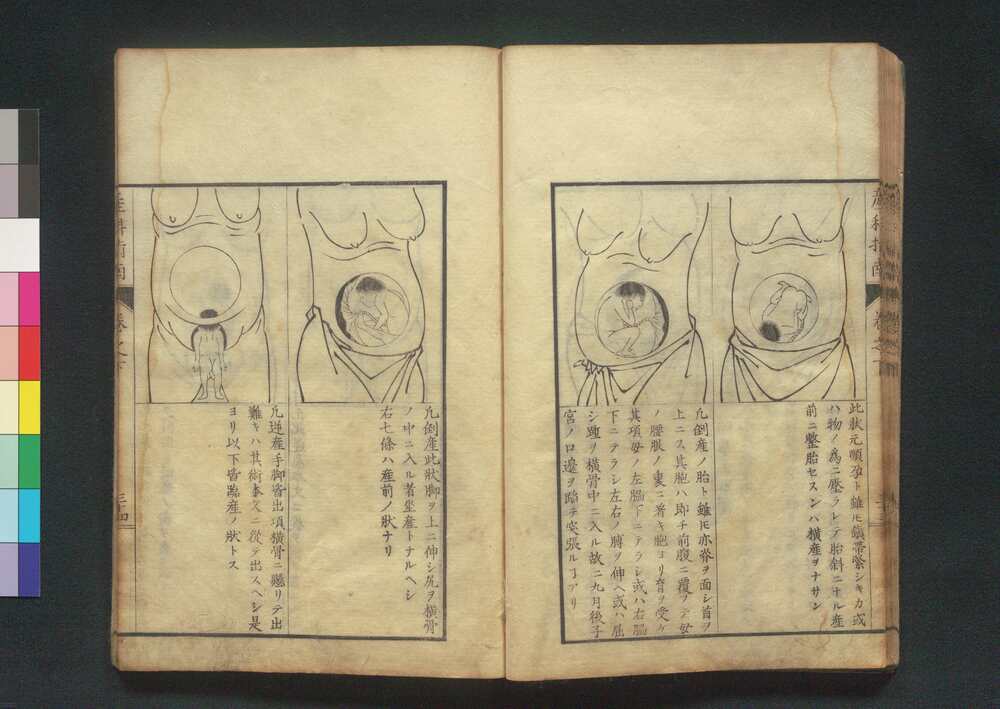 産科指南
巻之下
此狀元順孕ト雖モ鎮帯緊シキカ或
ハ物ノ為ニ壓ラレテ胎斜ニナル産
前ニ整胎セスンハ横産ヲナサン
凡倒産ノ胎ト雖モ亦脊ヲ面シ首ヲ
上ニス其胞ハ即チ前腹ニ覆ヲテ母
ノ腰眼ノ裏ニ著キ胞ヨリ育ヲ受ケ
其項母ノ左脇下ニテラシ或ハ右脇
下ニテラシ左右ノ膊ヲ伸ヘ或ハ屈
シ踵ヲ横骨中ニ入ル故ニ九月後子
宮ノ口邊ヲ蹈テ突張ルヿアリ
凡倒産此狀脚ヲ上ニ伸シ尻ヲ横骨
ノ中ニ入ル者坐産トナルヘシ
右七條ハ産前ノ狀ナリ
凡逆産手脚皆出項横骨ニ礙リテ出
難キハ其術本文ニ從テ出スヘシ是
ヨリ以下皆臨産ノ狀トス
産科指南
巻之下
三十四